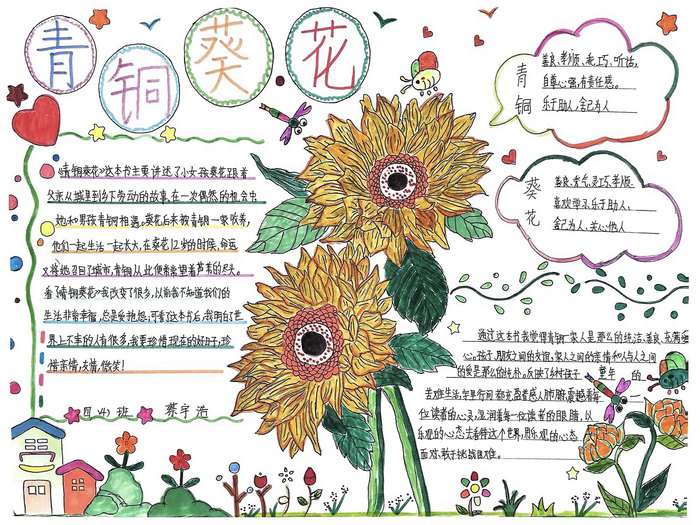 青铜葵花
《青铜葵花》这本书主要讲述了小女孩葵花跟着
父亲从城里到乡下劳动的故事,在一次偶然的机会中
她和男孩青铜相遇。葵花后来被青铜一家收养,
他们一起生活一起长大,在葵花12岁的时候,命运
又将她召回了城市,青铜从此便常常望着芦苇的尽头。
看了《青铜葵花》我改变了很多,以前我不知道我们的
生活非常幸福,总是爱抱怨,可看了这本书后,我明白了世
界上不幸的人有很多,我更珍惜现在的好日子,珍
惜亲情,友情,微笑!
四(4)班 蔡宇浩
青铜
善良、孝顺、手巧、听话,
自尊心强,有责任感。
乐于助人,舍己为人
葵花
善良、勇气、灵巧、孝顺
喜欢学习、乐于助人,
舍己为人、关心他人
通过这本书我觉得青铜一家人是那么的纯洁、善良、充满爱
心。孩子、朋友之间的友谊,家人之间的亲情和人与人之间
的爱是那么的纯朴。反映了乡村孩子童年的
苦难生活,字里行间都充盈着感人肺腑,震撼着每一
位读者的心灵,湿润着每一位读者的眼睛,以
乐观的心态去看待这个世界,用乐观的心态
面对、敢于挑战困难。